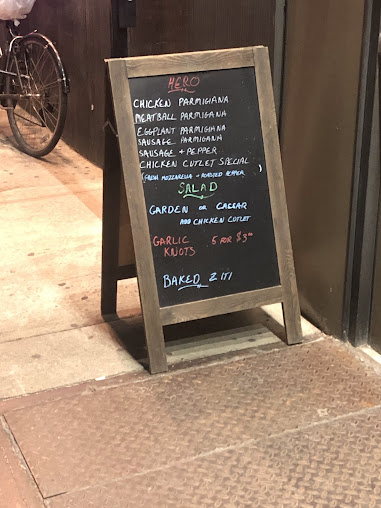 HERO
CHICKEN PARMIGIANA
MEATBALL PARMIGIANA
EGGPLANT PARMIGIANA
SAUSAGE PARMIGIANA
SAUSAGE + PEPPER
CHICKEN CUTLET SPECIAL
(FRESH MOZZARELLA + ROASTED PEPPER )
SALAD
GARDEN OR CAESAR
ADD CHICKEN CUTLET
GARLIC 5 FOR $3.00
KNOTS
BAKED ZITI